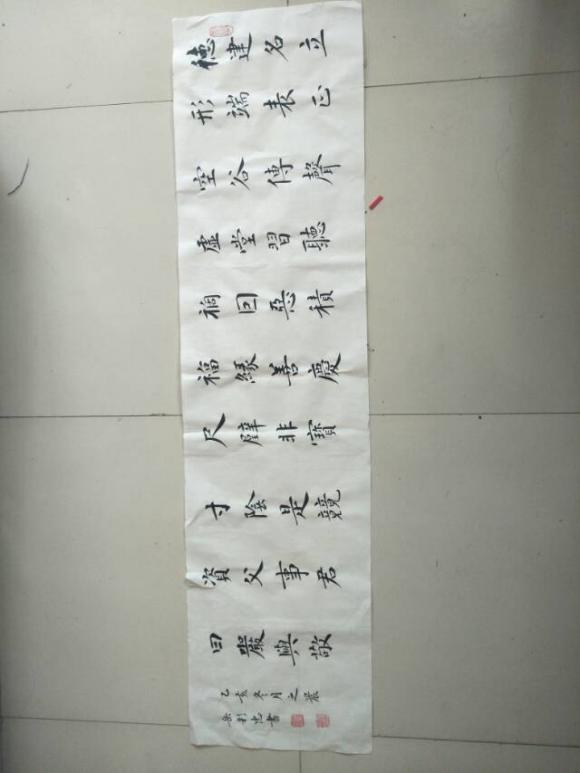 德建名立
形端表正
空谷傳聲
虛堂習聽
禍因惡積
福緣善慶
尺璧非寶
寸陰是競
資父事君
曰嚴與敬
亥冬月之
利忠書